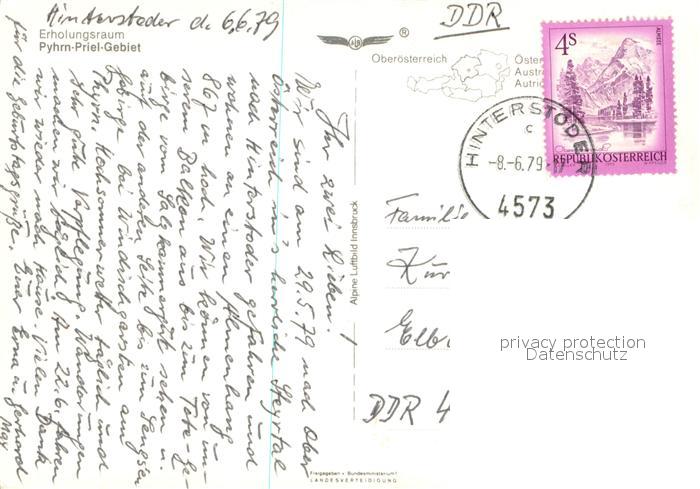 Hinterstoder d. 6.6.79
Erholungsraum
Pyhrn-Priel-Gebiet
Ihr zwei Lieben!
Wir sind am 29.5.79 nach Ober
österreich in's herrliche Steyrtal
nach Hinterstoder gefahren und
wohnen an einem Almenhang
867 m hoch. Wir können von un-
serem Balkon aus bis zum Tote-Ge-
birge vom Salzkammergut sehen u.
auf der anderen Seite bis zum Sengsen
gebirge bei Windischgarsten am
Phyrn. Hochsommerwetter täglich und
sehr gute Verpflegung. Wanderungen
machen wir täglich. Am 22.6. fahren
wir wieder nach Hause. Vielen Dank
für die Geburtstagsgrüße. Eure Erna u. Gerhard
Max
®
Alpine Luftbild Innsbruck
Freigegeben v. Bundesministerium f.
LANDESVERTEIDIGUNG
DDR
Oberösterreich
Öster
Austr
Autric
HINTERSTODER
c
-8.-6.79-
4573
4S
ALMSEE
REPUBLIK ÖSTERREICH
Familie
Kur
Elb
DDR 4
privacy protection
Datenschutz